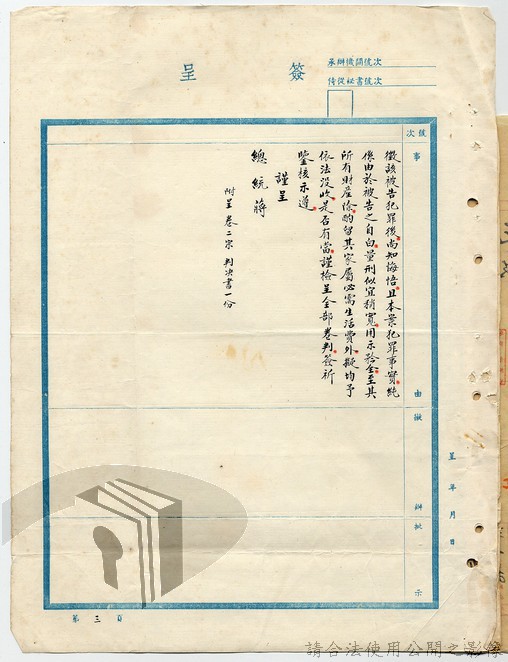 簽呈
承辦機關號次
侍從秘書號次
號次
事由
擬辦
批示
徵該被告犯罪後尚知悔悟且本案犯罪事實純
係由於被告之自白量刑似宜稍寬用示矜全至其
所有財產除酌留其家屬必需生活費外擬均予
依法沒收是否有當謹檢呈全部卷判簽祈
鑒核示遵
謹呈
總統蔣
附呈卷二宗判決書一份
呈年月日
第三頁
請合法使用公開之影像